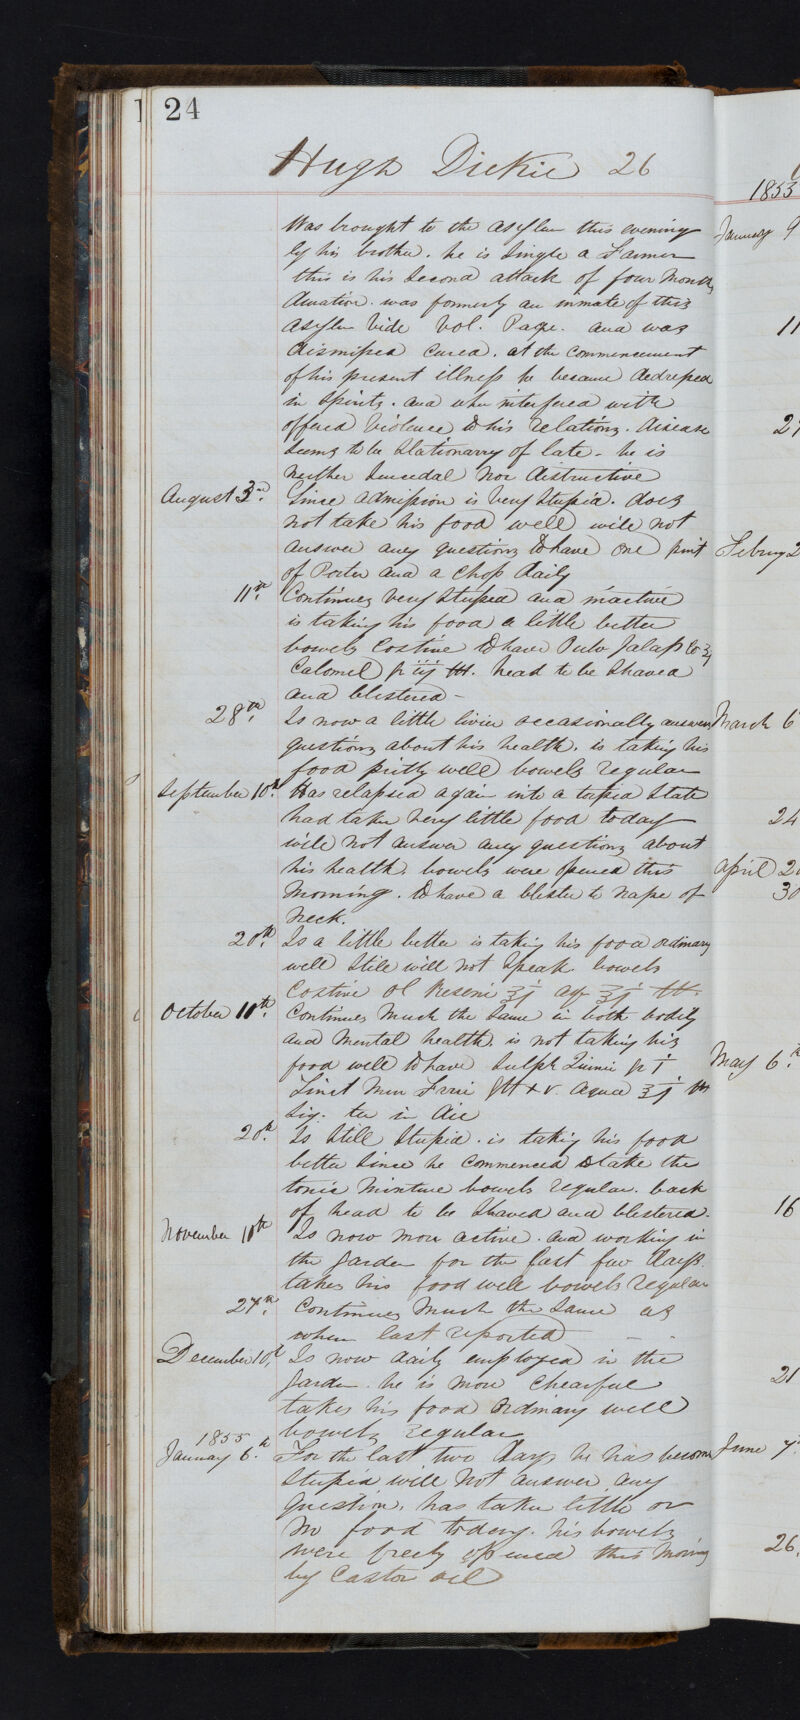 24
Hugh Dickie 26
Was brought to the asylum this evening
by his brother. he is Single a Farmer
this is his Second attack of four Months
duration. was formerly an inmate of this
asylum Vide Vol. Page. and was
dismissed cured. at the commencement
of his present illness he became
in Spirits. and when interfered with
offered Violence to his relations. disease
seems to be Stationarry of late. he is
neither Suicedal Nor distructive
August 3rd. Since admission is Very Stupid. does
not take his food well will not
answer any questions to have one pint
of Porter and a Chop daily
11th. Continues Very Stupid and inactive
is taking his food a little better
bowels Costive to have Pulv Jalap Co
Calomel gr iij head to be Shaved
and blistered -
28th. Is now a little livier occasionally answers
questions about his health. is taking his
food pritty well bowels regular
September 10th. Has relapsed again into a torpid State
had taken Very little food today
will not answer any questions about
his health. bowels were opened this
Morning. to have a blister to nape of
neck.
20th. Is a little better is taking his food ordinary
well Still will not Speak. bowels
Costive Ol Reseni ʒj aq ʒj
October 10th. Continues Much the Same in both bodily
and Mental health. is not taking his
food well to have Sulph Quinie gr i
Tinct Mur Ferri gtt xv. Aqua ʒj
Sig. ter in die
20th. Is Still Stupid. is taking his food
better Since he Commenced to take the
tonic Mixture bowels regular. back
of head to be Shaved and blistered.
November 10th Is now more active. and working in
the garden for the last few days.
takes his food well bowels regular
27th. Continues Much the Same as
when last reported
December 10th Is now daily employed in the
garden. he is more Chearful
takes his food ordinary well
bowels regular
1855
January 6th. For the last two days he has become
Stupid will Not answer any
question. has taken little or
no food today. his bowels
were freely opened this Morning
by Castor oil
1853
January 9
11
27
Febury 2
March 6
24
April 20
30
May 6th
16
21
June 7
26.